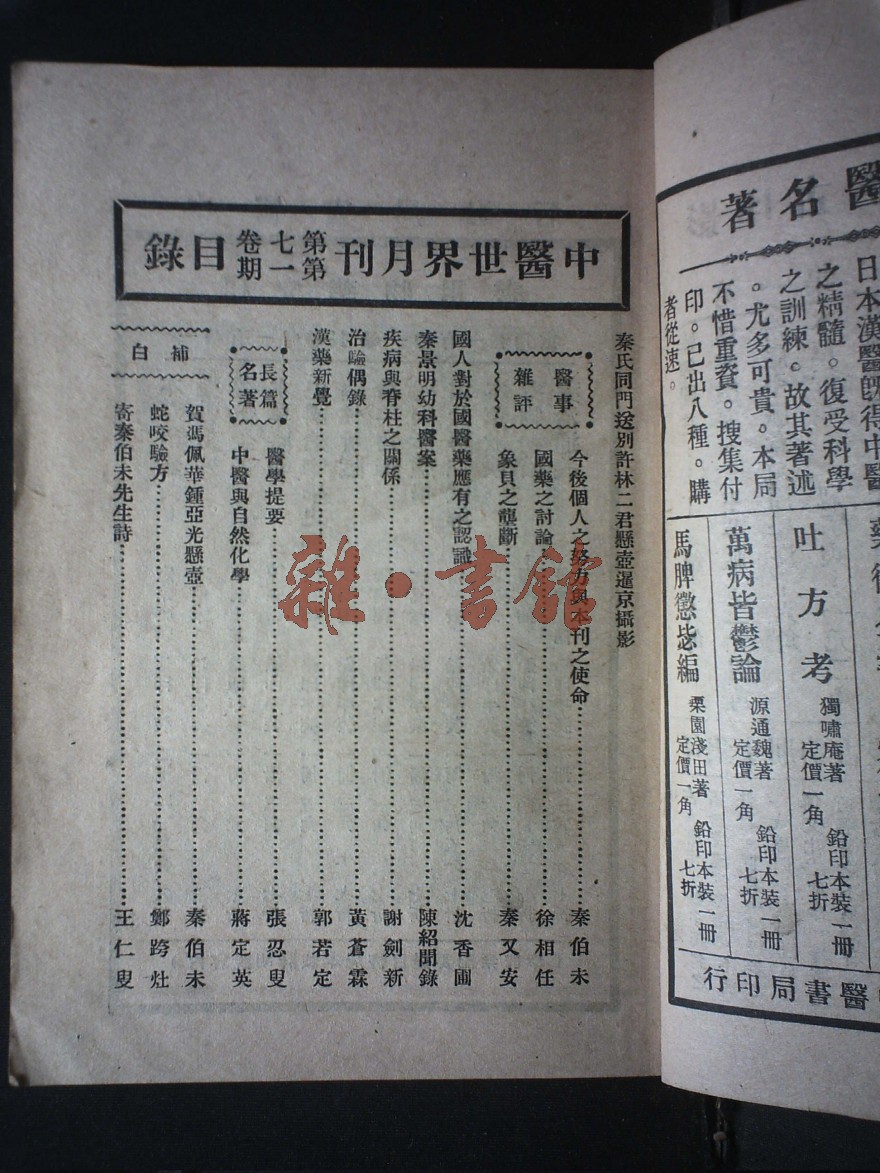 中醫世界月刊第七卷第一期目錄
秦氏同門送別許林二君懸壺暹京攝影
醫事雜評
今後個人之努力與本刊之使命 秦伯未
國藥之討論 徐相任
象貝之壟斷 秦又安
國人對於國醫藥應有之認識 沈香圃
秦景明幼科醫案 陳紹聞錄
疾病與脊柱之關係 謝劍新
治驗偶錄 黃蒼霖
漢藥新覺 郭若定
長篇名著
醫學提要 張忍叟
中醫與自然化學 蔣定英
補白
賀馮佩華鍾亞光懸壺 秦伯未
蛇咬驗方 鄭跨灶
寄秦伯未先生詩 王仁叟
雜·書館
醫名著
日本漢醫旣得中醫
之精髓。復受科學
之訓練。故其著述
。尤多可貴。本局
不惜重資。搜集付
印。已出八種。購
者從速。
吐方考 獨嘯庵著 定價一角 鉛印本裝一冊 七折
萬病皆鬱論 源通魏著 定價一角 鉛印本裝一冊 七折
馬脾懲毖編 栗園淺田著 定價一角 鉛印本裝一冊 七折
醫書局印行